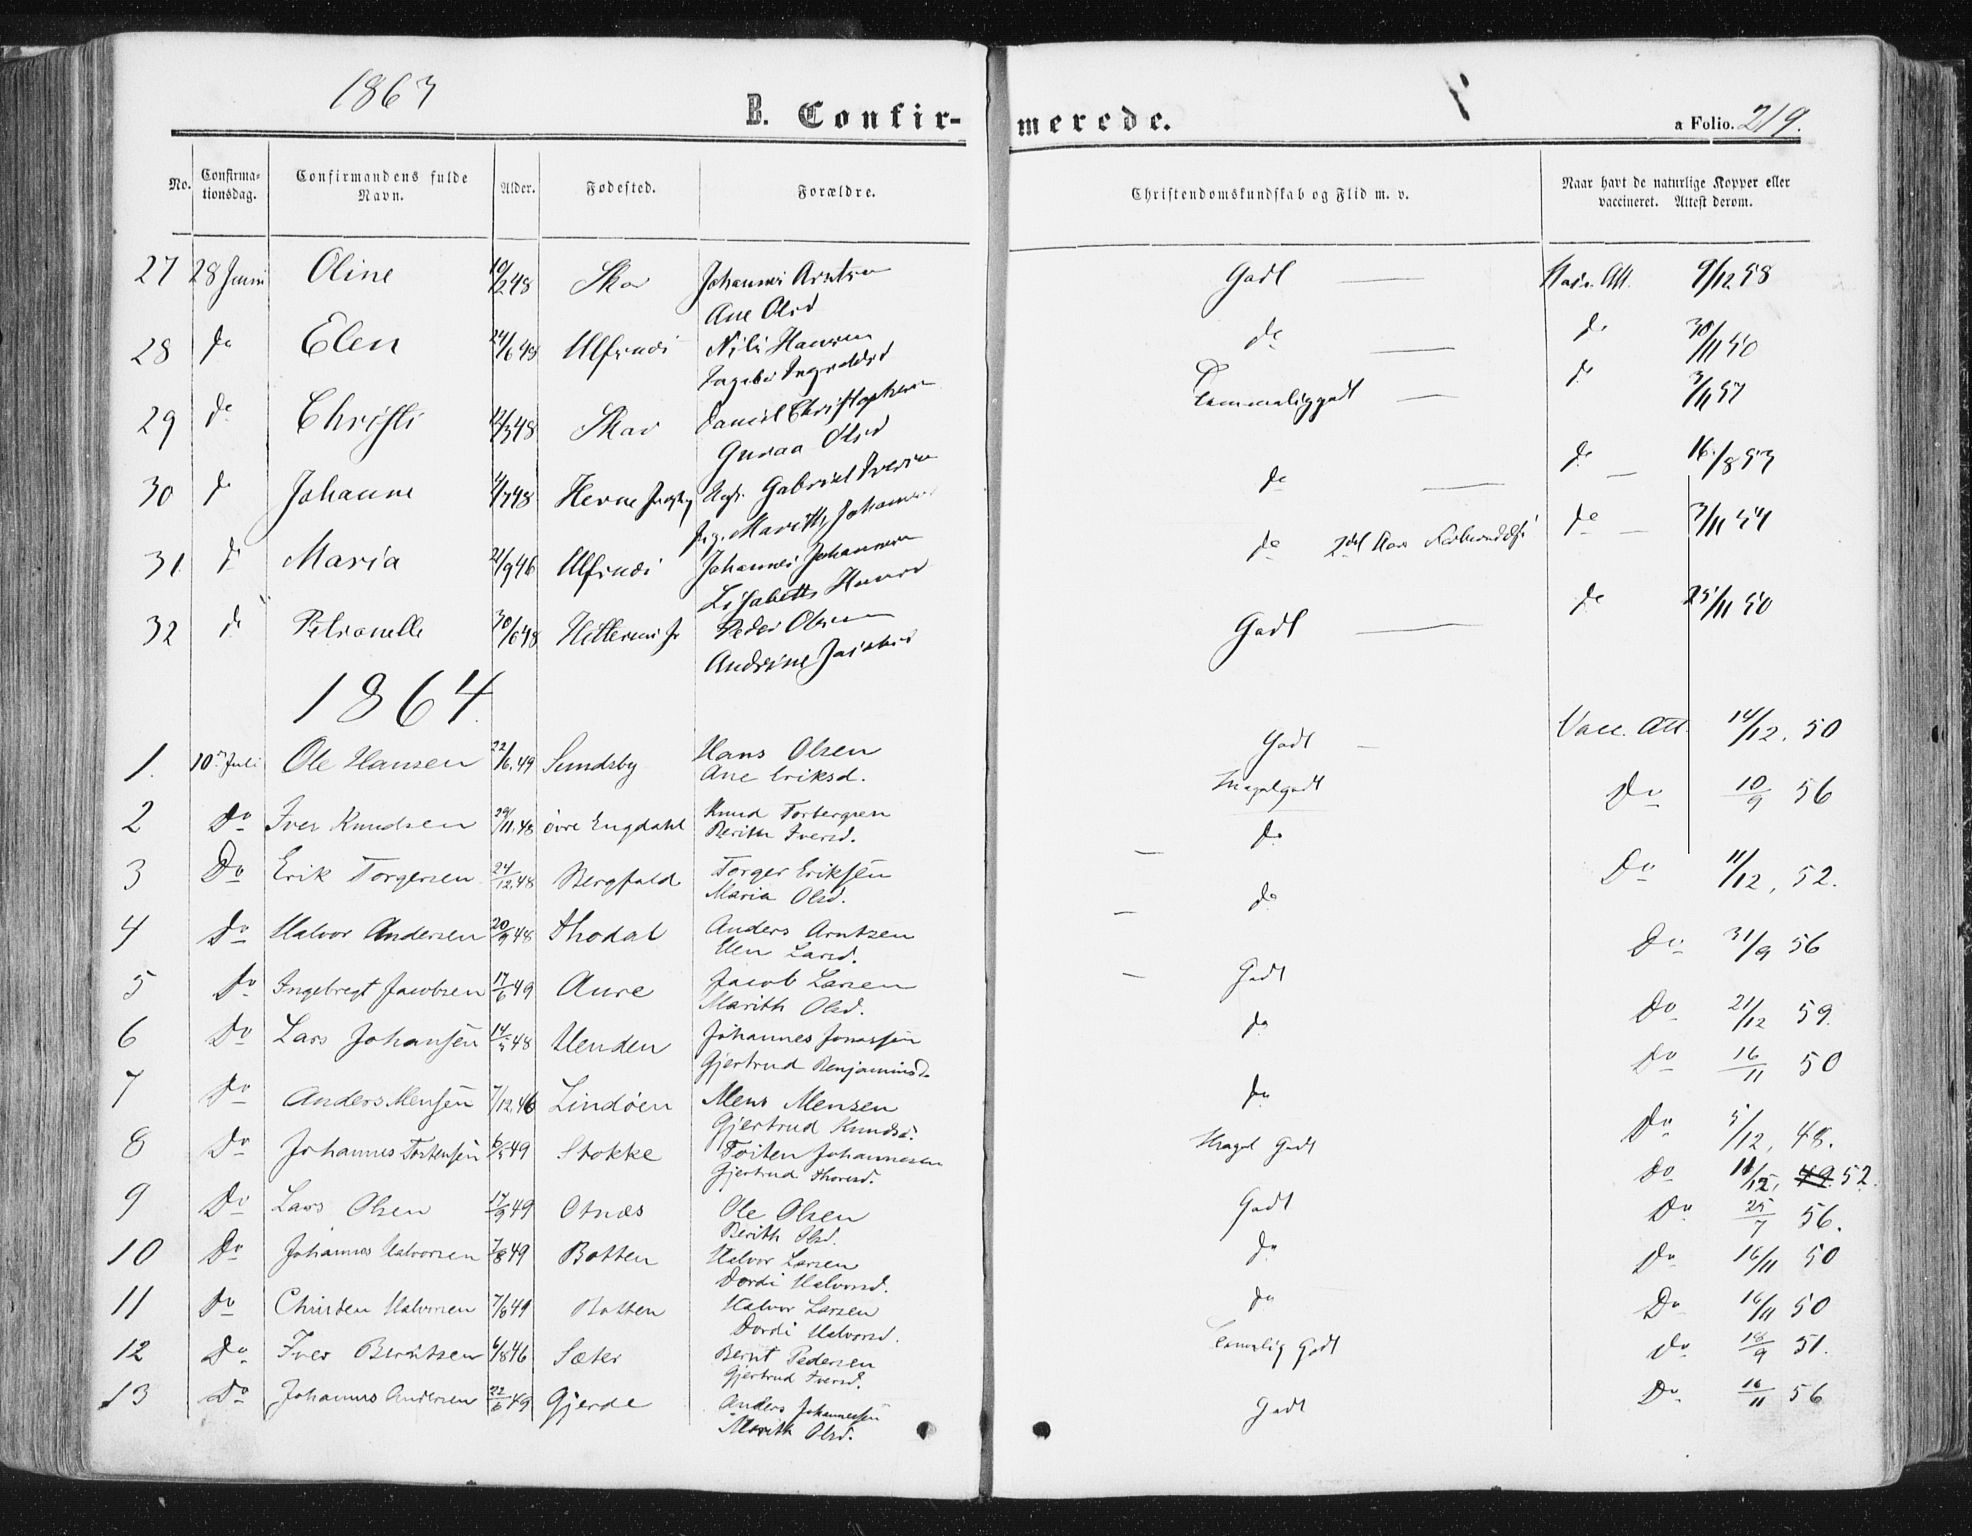 1863
B. Confir-
merede.
a Folio. 219.
No. Confirma-tionsdag. Confirmandens fulde Navn. Alder. Fødested. Forældre. Christendomskundskab og Flid m. v. Naar havt de naturlige Kopper eller vaccineret. Attest derom.
27 28 Juni Oline 10/2 48 Skar Johannes Arntsen Godt — Att. 9/12 58
Ane Olsd
28 do Elen 24/6 48 Ulfsnæs Nils Hansen do — do 30/11 50
29 do Christi 12/3 48 Skar Daniel Christophersen Temmelig godt — do 3/11 57
Guroa Olsd
30 do Johanne 4/7 48 Hevne Gabriel Iversen do — do — 16/8 53
Marith Johannesd
31 do Maria 21/9 46 Ulfsnæs Johannes Johannesen do 2det Aars Forberedelse do — 3/11 54
Lisabeth Hansd
32 do Petronelle 30/6 48 Hitteren Peder Olsen Godt — do 25/11 50
Andrine
1864.
1. 10. Juli Ole Hansen 22/6. 49 Sundsby Hans Olsen Godt — Vacc. Att. 14/12. 50
Ane Eriksd.
2 Do Iver Knudsen 29/11. 48 øvre Engdahl Knud Torbergsen Meget godt Do 10/9 56
Berith Iversd.
3 Do Erik Torgersen 24/12. 48 Bergfald Torger Eriksen — do Do 11/12, 52.
Maria Olsd.
4 Do Halvor Andersen 20/9 48 Rhodal Anders Arntzen — do Do 31/9 56
Elen Larsd.
5 Do Ingebregt Jacobsen 17/6 49 Aure Jacob Larsen — Godt Do 21/12 59.
Marith Olsd.
6 Do Lars Johansen 14/5 48 Uenden Johannes Jonassen do Do 16/11 50
Gjertrud Benjaminsd.
7 Do Anders Mensen 7/12. 46 Lindøen Mens Mensen do Do 5/12, 48.
Gjertrud Knudsd.
8 Do Johannes Torstensen 6/5 49 Stokke Toiten Johannesen Meget Godt Do 11/12, 49. 52.
Gjertrud Thoresd.
9 Do Lars Olsen 17/9 49 Otnæs Ole Olsen Godt Do 25/7 56.
Berith Olsd.
10 Do Johannes Halvorsen 7/8 49 Botten Halvor Larsen do Do 16/11 50
Dordi Halvorsd.
11 Do Christen Halvorsen 7/8 49 Botten Halvor Larsen do Do 16/11 50
Dordi Halvorsd.
12 Do Iver Berntsen 6/8 46 Sæter Bernt Pedersen Temmelig Godt Do 18/9 51.
Gjertrud Iversd.
13 Do Johannes Andersen 22/6 49 Gjerde Anders Johannessen Godt Do 16/11 56
Marith Olsd.